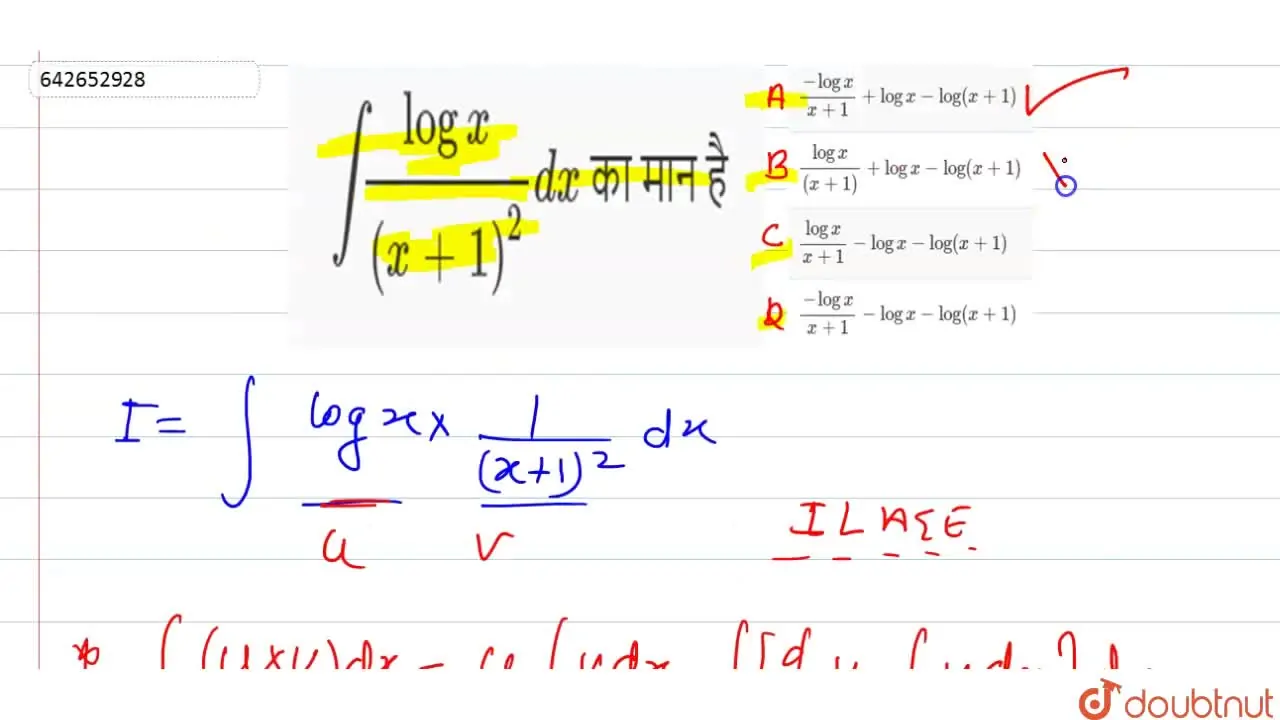 642652928
∫ log x / (x + 1)^2 dx का मान है
A (−log x)/(x + 1) + log x − log(x + 1)
B (log x)/((x + 1)) + log x − log(x + 1)
C (log x)/(x + 1) − log x − log(x + 1)
D (−log x)/(x + 1) − log x − log(x + 1)
I = ∫ log x × 1/(x+1)^2 dx
u v
I L A T E
∫ (u × v) dx = u ∫ v dx
doubtnut